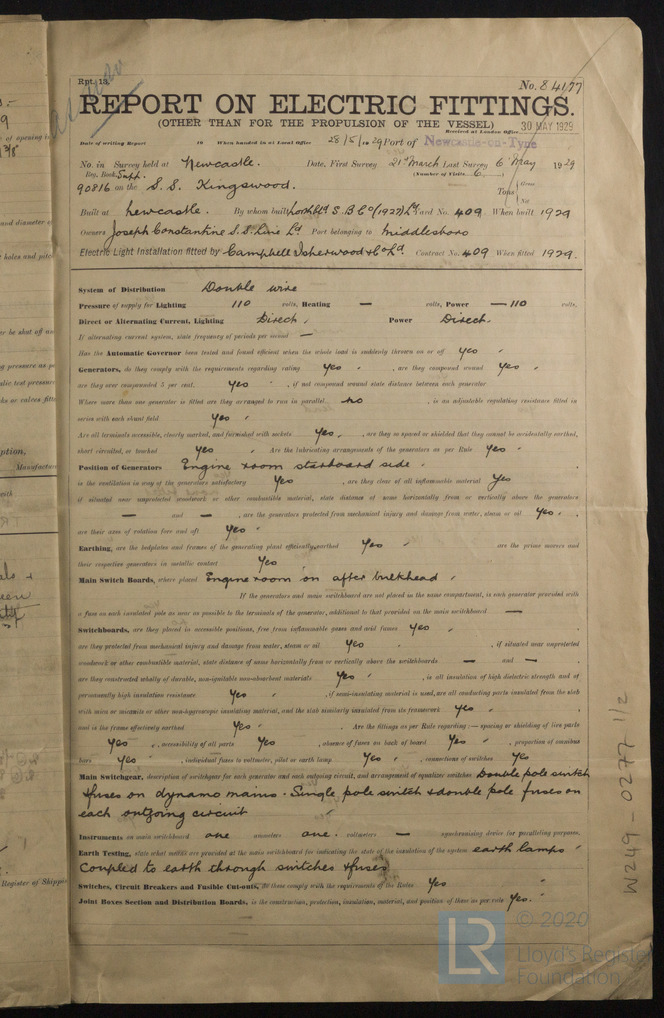 Rpt. 13.
No. 84177
REPORT ON ELECTRIC FITTINGS.
(OTHER THAN FOR THE PROPULSION OF THE VESSEL)
Received at London Office 30 MAY 1929
Date of writing Report 19 When handed in at Local Office 28/5/1929 Port of Newcastle-on-Tyne
No. in Survey held at Newcastle. Date, First Survey 21st March Last Survey 6 May 1929
Reg. Book. Supp. (Number of Visits 6)
90816 on the S.S. Kingswood. Tons Gross Net
Built at Newcastle. By whom built S.B. Co (1927) Ld Yard No. 409 When built 1929
Owners Joseph Constantine S.S. Line Ld Port belonging to Middlesboro
Electric Light Installation fitted by Campbell Isherwood & Co Ld. Contract No. 409 When fitted 1929.
System of Distribution Double wire
Pressure of supply for Lighting 110 volts, Heating — volts, Power — 110 volts,
Direct or Alternating Current, Lighting Direct. Power Direct.
If alternating current system, state frequency of periods per second —
Has the Automatic Governor been tested and found efficient when the whole load is suddenly thrown on or off yes
Generators, do they comply with the requirements regarding rating yes , are they compound wound yes
are they over compounded 5 per cent. yes , if not compound wound state distance between each generator
Where more than one generator is fitted are they arranged to run in parallel no , is an adjustable regulating resistance fitted in
series with each shunt field yes
Are all terminals accessible, clearly marked, and furnished with sockets yes , are they so spaced or shielded that they cannot be accidentally earthed,
short circuited, or touched yes Are the lubricating arrangements of the generators as per Rule yes
Position of Generators Engine room starboard side.
is the ventilation in way of the generators satisfactory yes , are they clear of all inflammable material yes
if situated near unprotected woodwork or other combustible material, state distance of same horizontally from or vertically above the generators
— and — , are the generators protected from mechanical injury and damage from water, steam or oil yes
are their axes of rotation fore and aft yes
Earthing, are the bedplates and frames of the generating plant efficiently earthed yes are the prime movers and
their respective generators in metallic contact yes
Main Switch Boards, where placed Engine room on after bulkhead
If the generators and main switchboard are not placed in the same compartment, is each generator provided with
a fuse on each insulated pole as near as possible to the terminals of the generator, additional to that provided on the main switchboard —
Switchboards, are they placed in accessible positions, free from inflammable gases and acid fumes yes
are they protected from mechanical injury and damage from water, steam or oil yes , if situated near unprotected
woodwork or other combustible material, state distance of same horizontally from or vertically above the switchboards — and —
are they constructed wholly of durable, non-ignitable non-absorbent materials yes , is all insulation of high dielectric strength and of
permanently high insulation resistance yes , if semi-insulating material is used, are all conducting parts insulated from the slab
with mica or micanite or other non-hygroscopic insulating material, and the slab similarly insulated from its framework yes
and is the frame effectively earthed yes Are the fittings as per Rule regarding :— spacing or shielding of live parts
yes , accessibility of all parts yes , absence of fuses on back of board yes , proportion of omnibus
bars yes , individual fuses to voltmeter, pilot or earth lamp yes , connections of switches yes
Main Switchgear, description of switchgear for each generator and each outgoing circuit, and arrangement of equalizer switches Double pole switch
& fuses on dynamo mains. Single pole switch & double pole fuses on
each outgoing circuit
Instruments on main switchboard one ammeters one voltmeters — synchronising device for paralleling purposes.
Earth Testing, state what means are provided at the main switchboard for indicating the state of the insulation of the system earth lamps
coupled to earth through switches & fuses
Switches, Circuit Breakers and Fusible Cut-outs, do these comply with the requirements of the Rules yes
Joint Boxes Section and Distribution Boards, is the construction, protection, insulation, material, and position of these as per rule yes.
W249-0277 1/2
© 2020
LR Lloyd's Register
Foundation